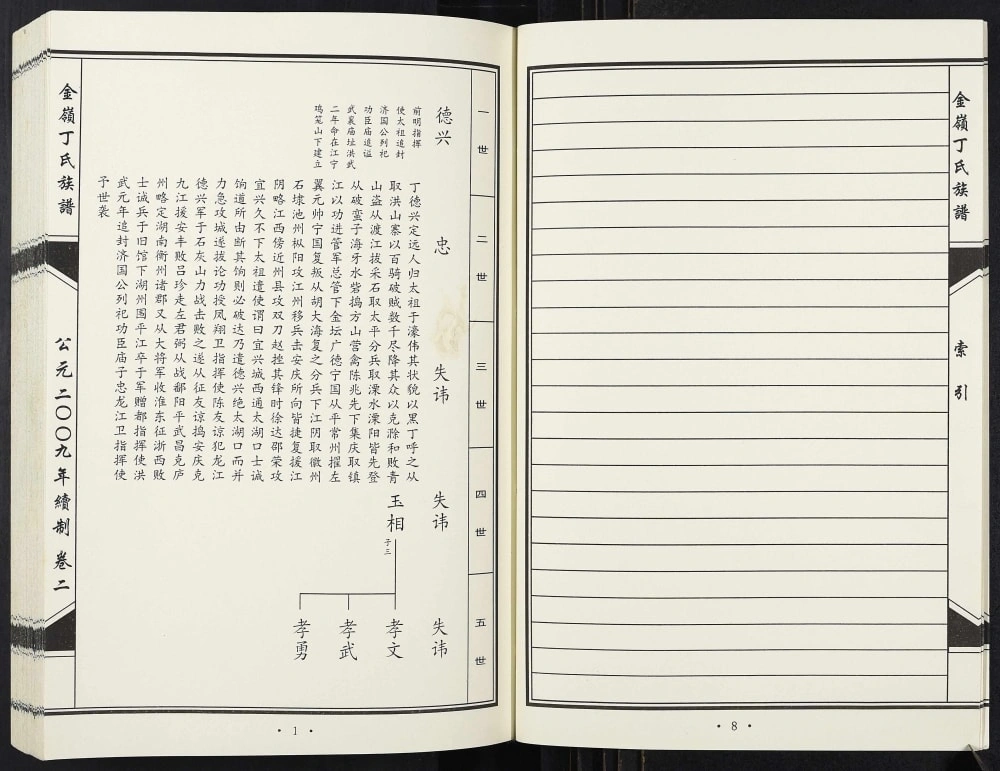 金嶺丁氏族譜
索引
· 8 ·
一世
二世
三世
四世
五世
德兴
忠
失讳
失讳
失讳
前明指挥
使太祖追封
济国公列祀
功臣庙追谥
武襄庙址洪武
二年命在江宁
鸡笼山下建立
丁德兴定远人归太祖于濠伟其状貌以黑丁呼之从
取洪山寨以百骑破贼数千尽降其众以克滁和败青
山盗从渡江拔采石取太平分兵取溧水溧阳皆先登
从破蛮子海牙水砦捣方山营禽陈兆先下集庆取镇
江以功进管军总管下金坛广德宁国从平常州擢左
翼元帅宁国复叛从胡大海复之分兵下江阴取徽州
石埭池州枞阳攻江州移兵击安庆所向皆捷复援江
阴略江西傍近州县攻双刀赵挫其锋时徐达邵荣攻
宜兴久不下太祖遣使谓曰宜兴城西通太湖口士诚
饷道所由断其饷则必破达乃遣德兴绝太湖口而并
力急攻城遂拔论功授凤翔卫指挥使陈友谅犯龙江
德兴军于石灰山力战击败之遂从征友谅捣安庆克
九江援安丰败吕珍走左君弼从战鄱阳平武昌克庐
州略定湖南衡州诸郡又从大将军收淮东征浙西败
士诚兵于旧馆下湖州围平江卒于军赠都指挥使洪
武元年追封济国公列祀功臣庙子忠龙江卫指挥使
予世袭
玉相
子三
孝文
孝武
孝勇
金嶺丁氏族譜
公元二〇〇九年續制 卷二
· 1 ·